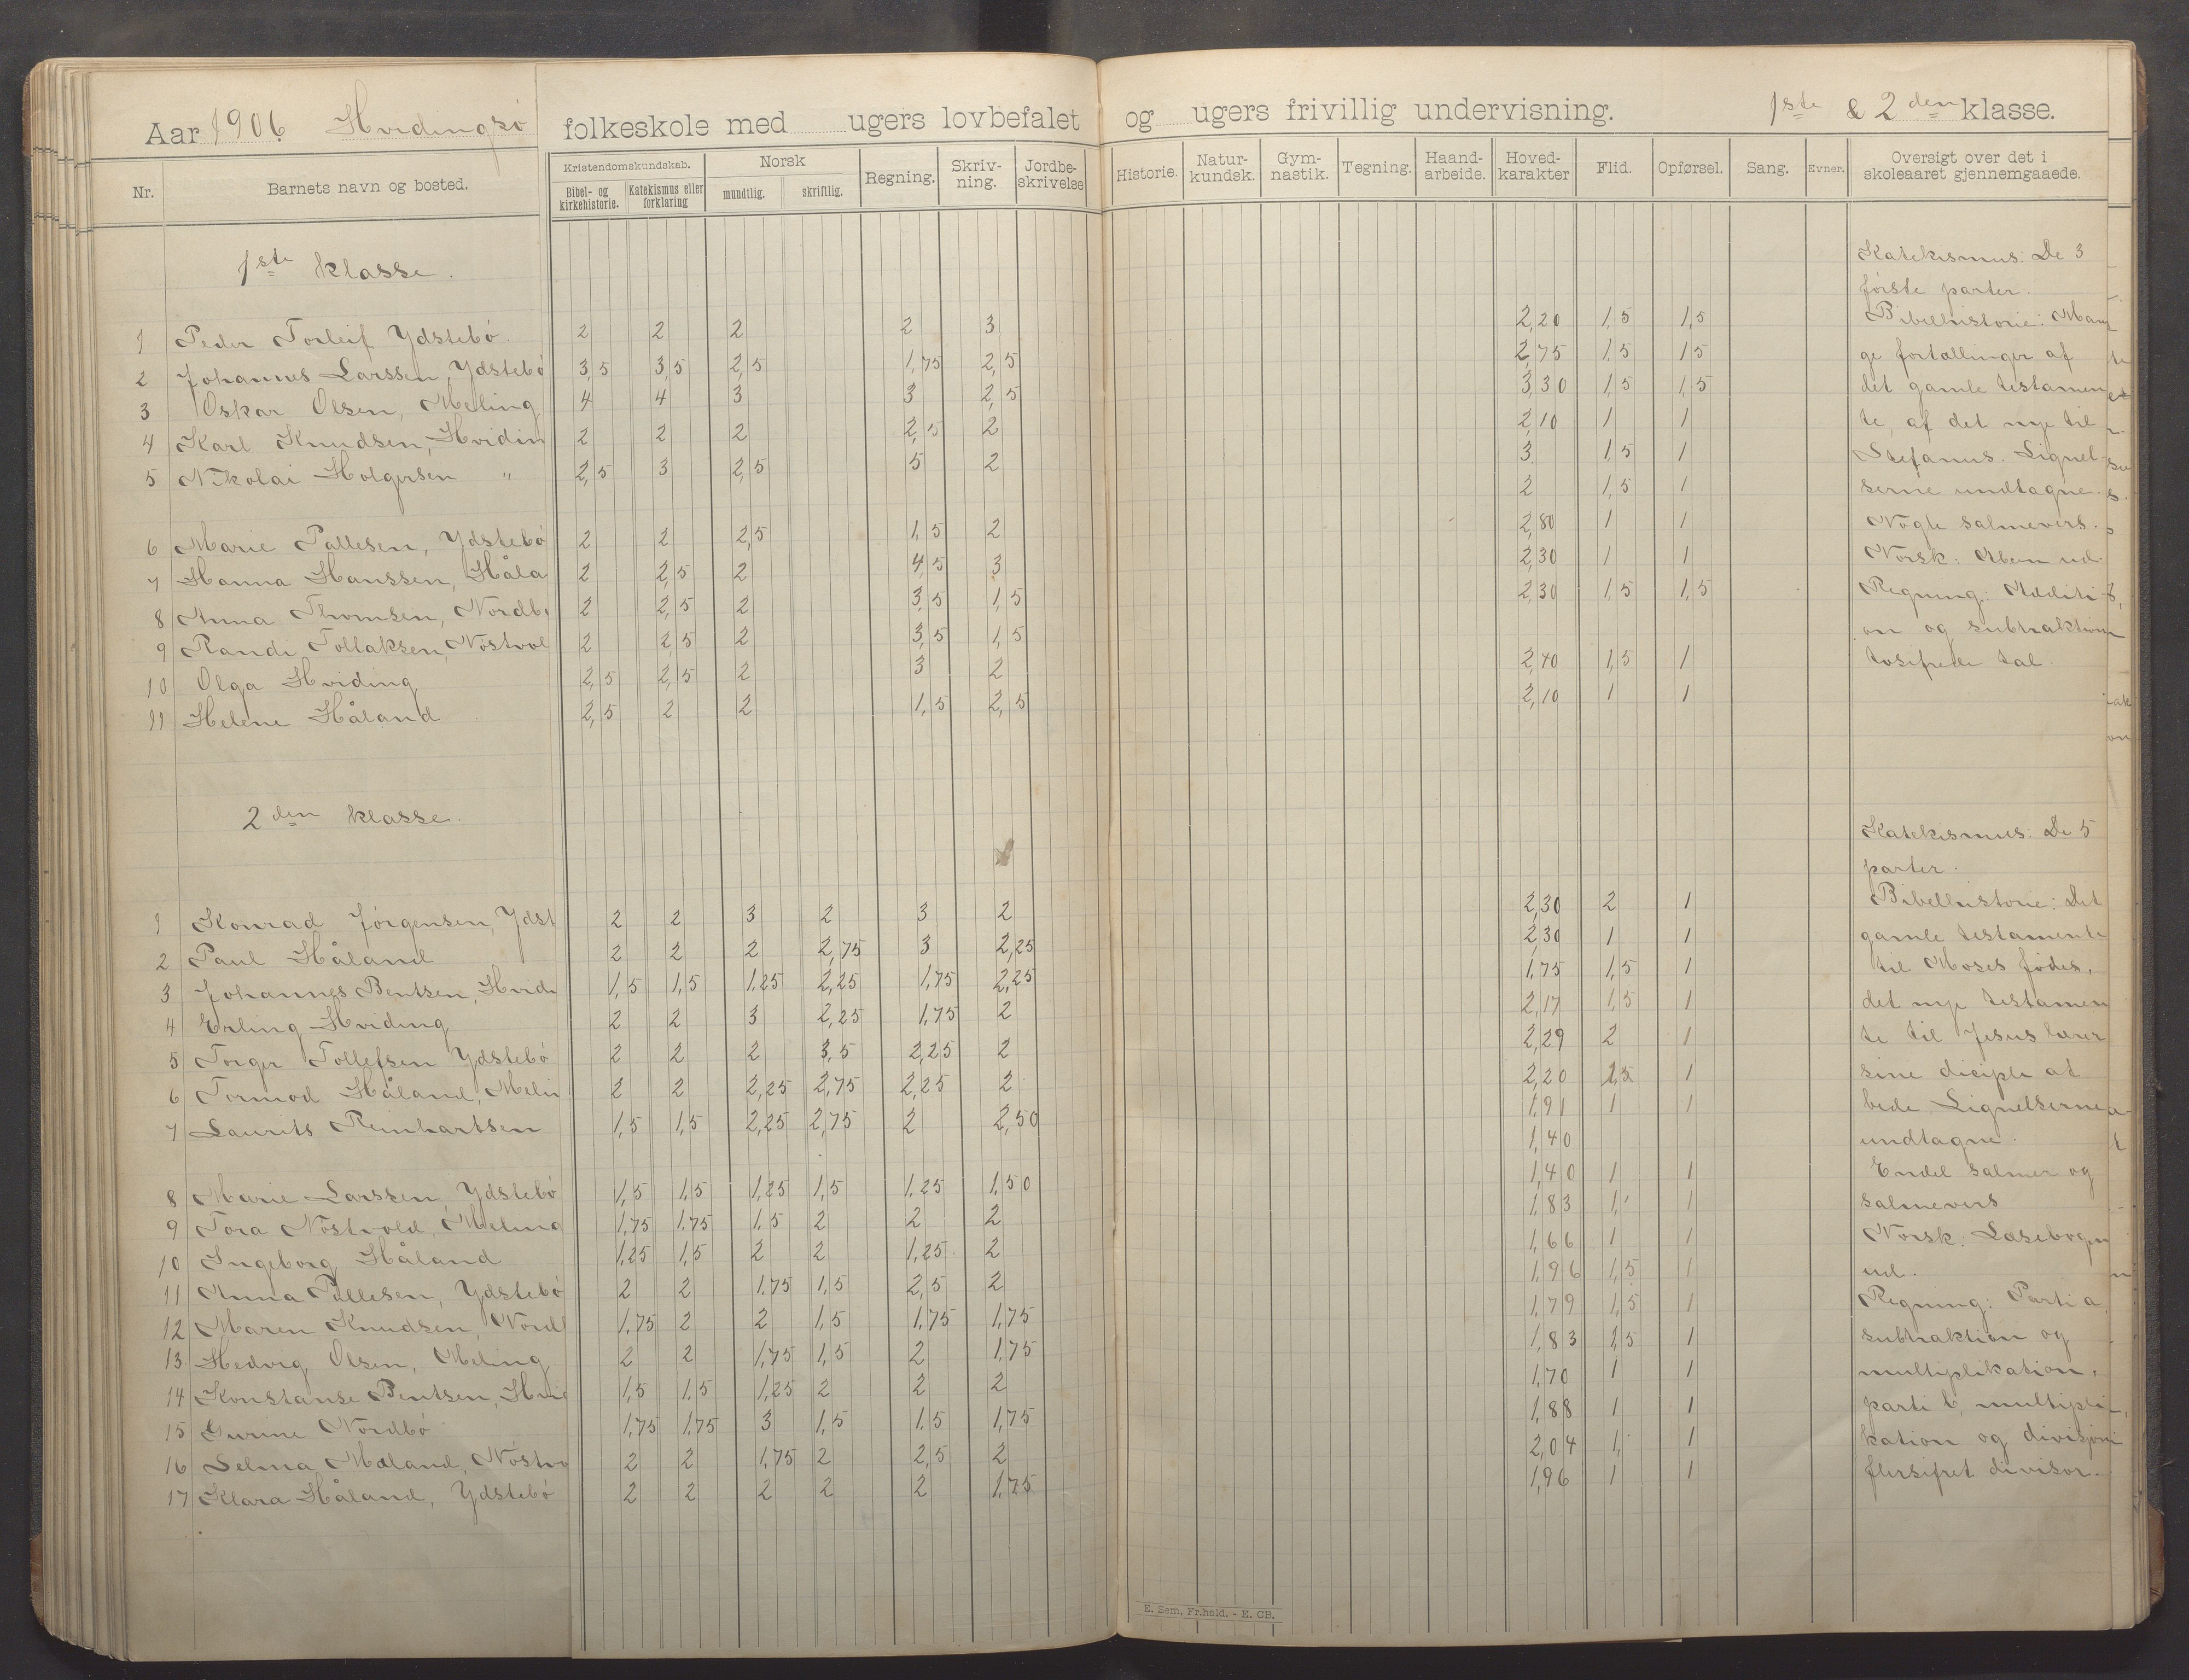 Aar 1906 Hvidingsö folkeskole med ugers lovbefalet og ugers frivillig undervisning. 1ste & 2den klasse.
Nr. Barnets navn og bosted. Kristendomskundskab. Norsk Regning. Skriv-ning. Jordbe-skrivelse Historie. Natur-kundsk. Gym-nastik. Tegning. Haand-arbeide. Hoved-karakter Flid. Opførsel. Sang. Evner. Oversigt over det i skoleaaret gjennemgaaede.
Bibel- og kirkehistorie. Katekismus eller forklaring mundtlig. skriftlig.
1ste klasse.
1 Peder Torleif Ydstebö 2 2 2 2 3 2,20 1,5 1,5
2 Johannes Larssen, Ydstebö 3,5 3,5 2,5 1,75 2,5 2,75 1,5 1,5
3 Oskar Olsen, Meling 4 4 3 3 2,5 3,30 1,5 1,5
4 Karl Knudsen, Hvidin 2 2 2 2,5 2 2,10 1 1
5 Nikolai Holgersen " 2,5 3 2,5 5 2 3 1,5 1
6 Marie Pallesen, Ydstebö 2 2 2,5 1,5 2 2 1,5 1
7 Hanna Hanssen, Håla 2 2,5 2 4,5 3 2,80 1 1
8 Anna Thomsen, Nordb 2 2,5 2 3,5 1,5 2,30 1 1
9 Randi Tollaksen, Nöstvol 2 2,5 2 3,5 1,5 2,30 1,5 1,5
10 Olga Hviding 2,5 2,5 2 3 2 2,40 1,5 1
11 Helene Håland 2,5 2 2 1,5 2,5 2,10 1 1
Katekismus: De 3
förste parter.
Bibelhistorie: Man
ge fortællinger af
det gamle testamen
te, af det nye til
Stefanus. Lignel-
serne undtagne.
Nogle salmevers.
Norsk: Aben ud.
Regning: Additi-
on og subtraktion
tosifrede tal.
2den klasse.
1 Konrad Jörgensen, Ydst 2 2 3 2 3 2 2,30 2 1
2 Paul Håland 2 2 2 2,75 3 2,25 2,30 1 1
3 Johannes Bentsen, Hvidi 1,5 1,5 1,25 2,25 1,75 2,25 1,75 1,5 1
4 Erling Hviding 2 2 3 2,25 1,75 2 2,17 1,5 1
5 Torger Tollefsen Ydstebö 2 2 2 3,5 2,25 2 2,29 2 1
6 Tormod Håland, Melin 2 2 2,25 2,75 2,25 2 2,20 1
7 Laurits Reinhartsen 1,5 1,5 2,25 2,75 2 2,50 1,91 1 1
1,40
8 Marie Larssen, Ydstebö 1,5 1,5 1,25 1,5 1,25 1,50 1,40 1 1
9 Tora Nöstvold, Meling 1,75 1,75 1,5 2 2 2 1,83 1, 1
10 Ingeborg Håland 1,25 1,5 2 2 1,25 2 1,66 1 1
11 Anna Pallesen, Ydstebö 2 2 1,75 1,5 2,5 2 1,96 1,5 1
12 Maren Knudsen, Nordb 1,75 2 2 1,5 1,75 1,75 1,79 1,5 1
13 Hedvig Olsen, Meling 2 2 1,75 1,5 2 1,75 1,83 1,5 1
14 Konstanse Bentsen, Hvid 1,5 1,5 1,25 2 2 2 1,70 1 1
15 Gurine Nordbö 1,75 1,75 3 1,5 1,5 1,75 1,88 1 1
16 Selma Mæland, Nöstvo 2 2 1,75 2 2,5 2 2,04 1, 1
17 Klara Håland, Ydstebö 2 2 2 2 2 1,75 1,96 1 1
Katekismus: De 5
parter.
Bibelhistorie: Det
gamle testamente
til Moses födes,
det nye testamen
te til Jesus lærer
sine diciple at
bede. Lignelserne
undtagne.
Endel salmer og
salmevers
Norsk: Læsebogen
ud.
Regning: Parti a,
subtraktion og
multiplikation,
parti b, multipli-
kation og divisjon
flersifret divisor.
E. Sem, Fr.hald. - E. CB.